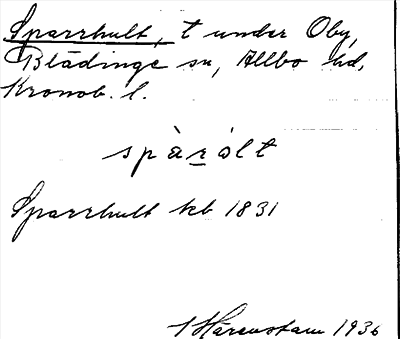 Sparrhult, t under Oby,
Blädinge sn, Allbo hd,
Kronob. l.
spàrólt
Sparrhult kb 1831
Härenstam 1936